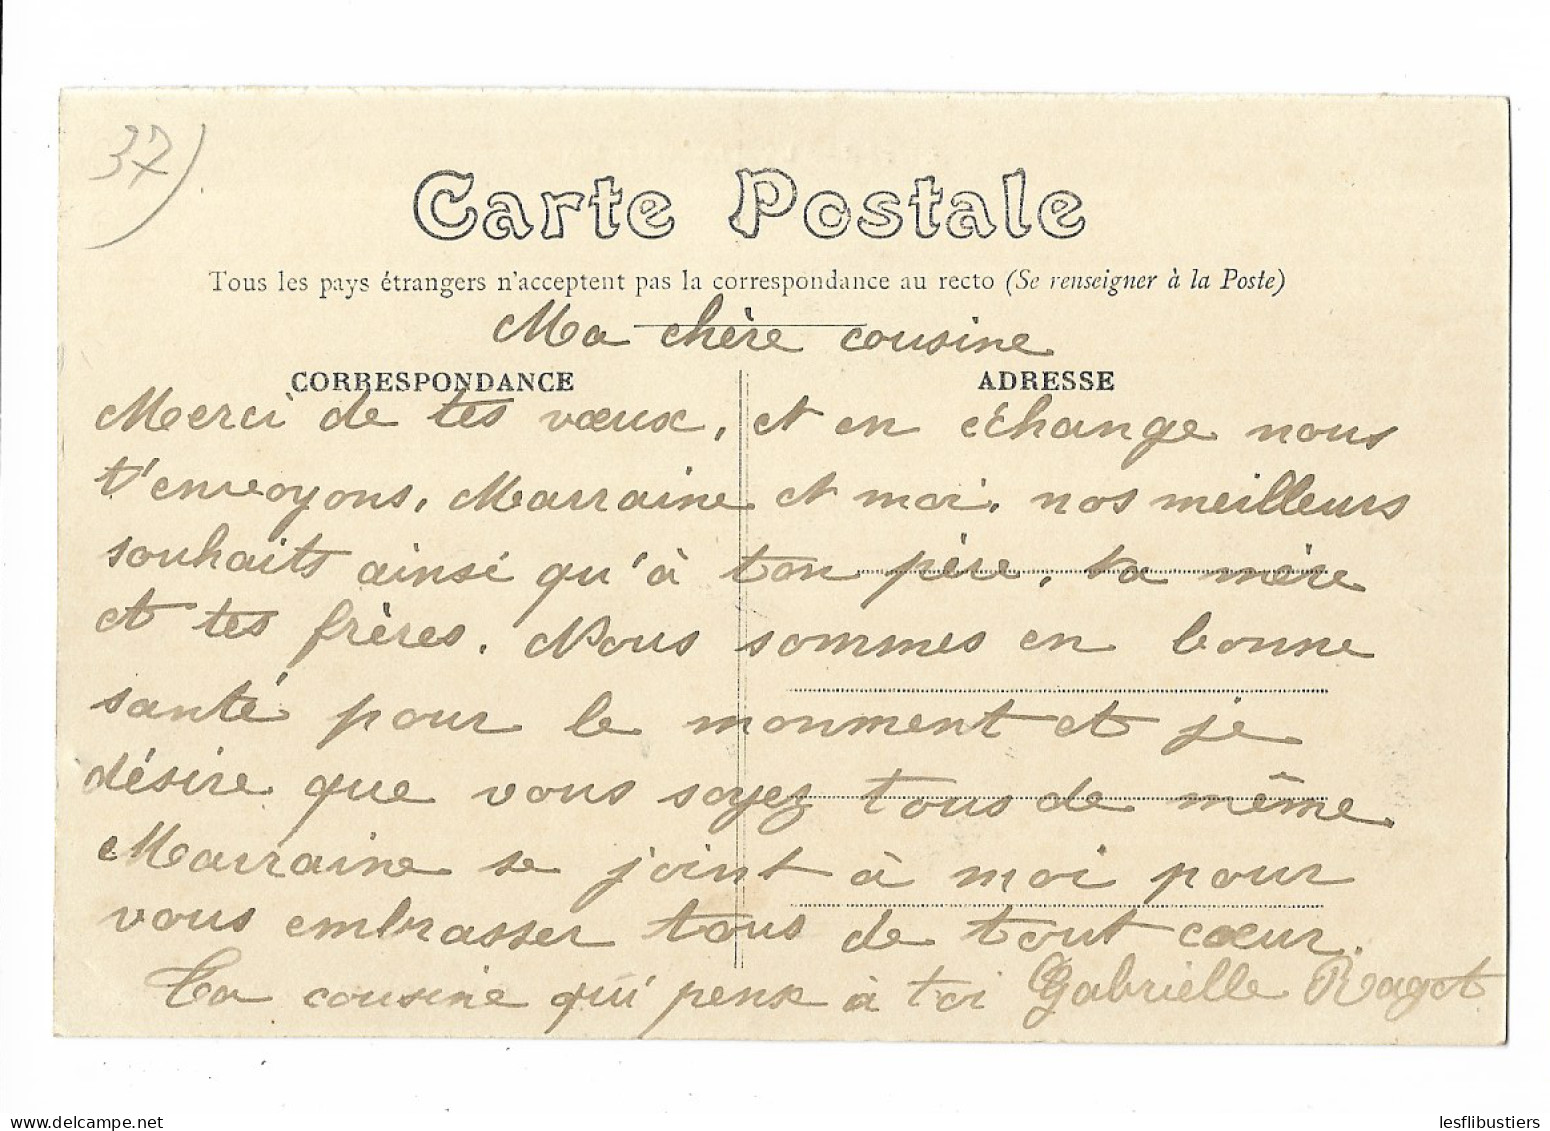 37)
Carte Postale
Tous les pays étrangers n'acceptent pas la correspondance au recto (Se renseigner à la Poste)
Ma chère cousine
CORRESPONDANCE ADRESSE
Merci de tes vœux, et en échange nous
t'envoyons, Marraine et moi, nos meilleurs
souhaits ainsi qu'à ton père, ta mère
et tes frères. Nous sommes en bonne
santé pour le monment et je
désire que vous soyez tous de même.
Marraine se joint à moi pour
vous embrasser tous de tout cœur.
Ta cousine qui pense à toi Gabrielle Ragot
lesflibustiers
delcampe.net